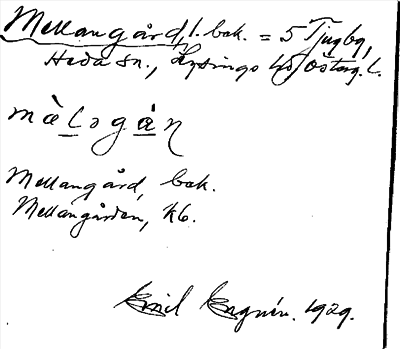 Mellangård, l. bek. = 5 Tjugby,
Heda sn., Lysings hd, Österg. l.
mὰlǝgάn
Mellangård, bek.
Mellangården, kb.
Emil Engnér. 1929.